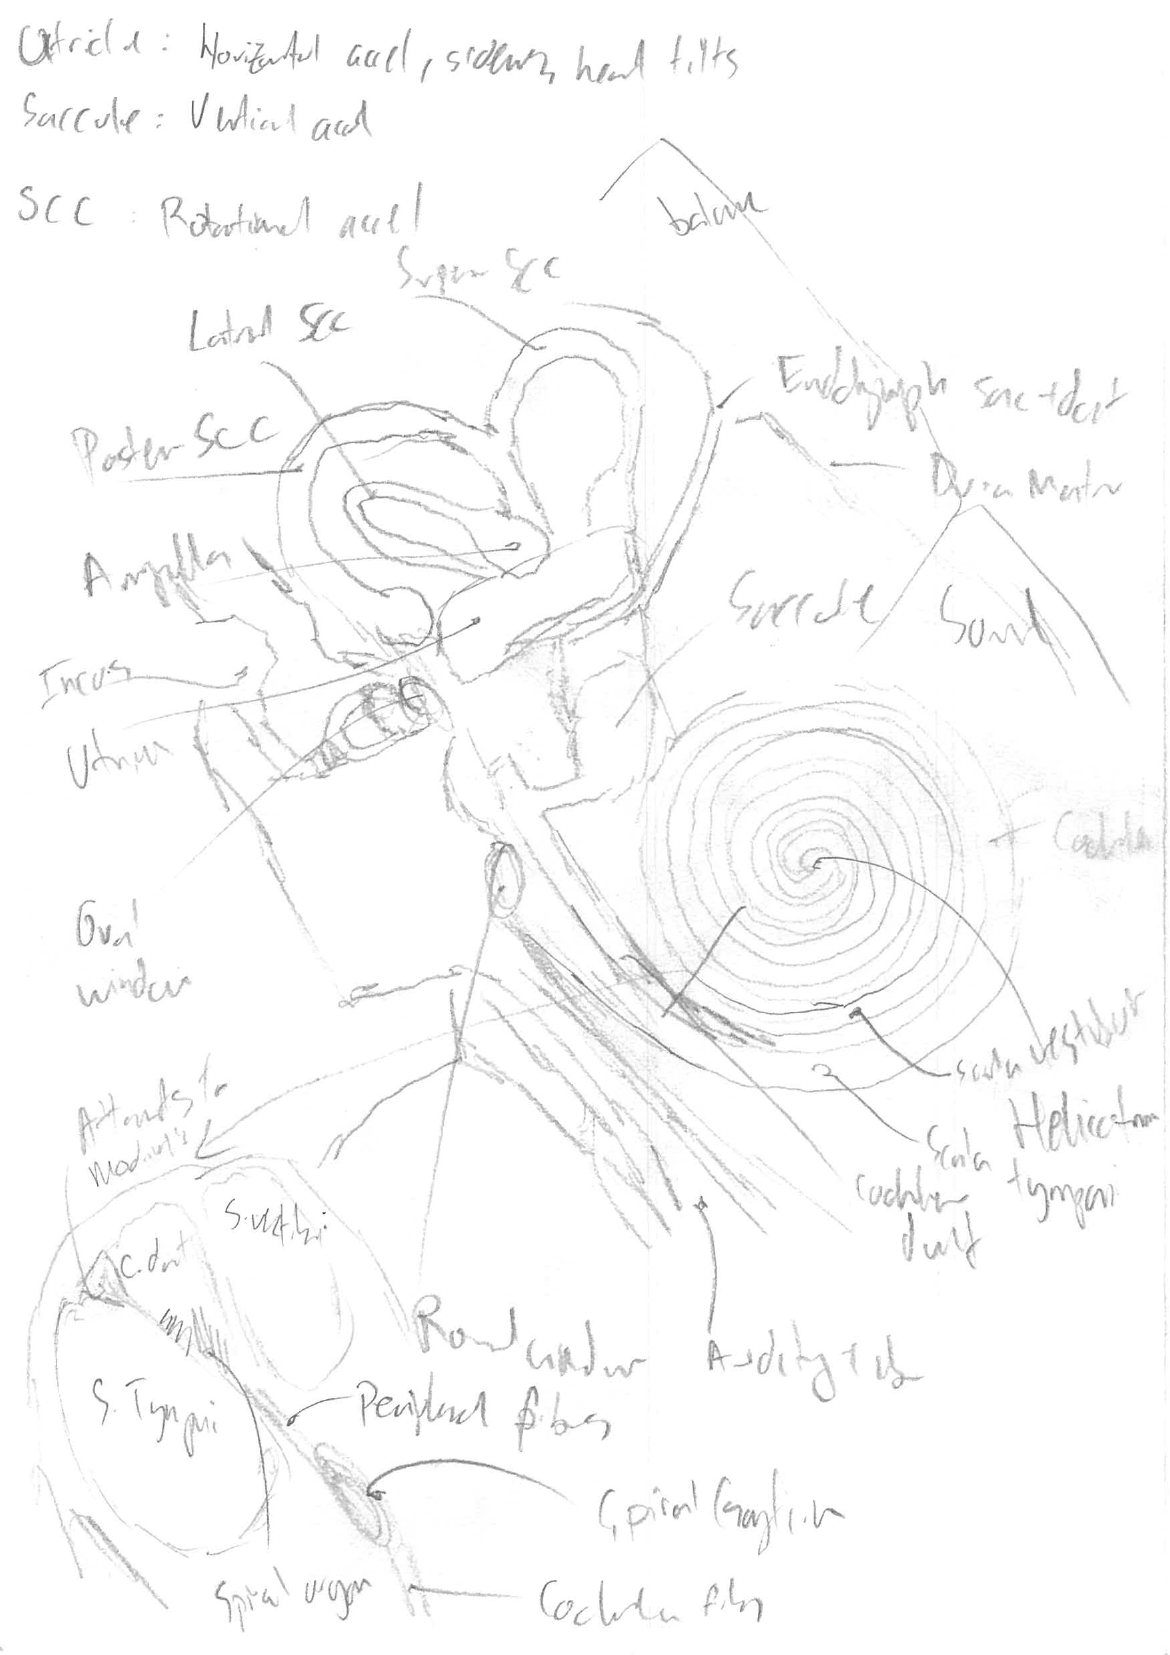 Utricle : Horizontal accel, sideways head tilts
Saccule : Vertical accel
SCC : Rotational accel
balance
Super SCC
Lateral SCC
Endolymph sac + duct
Poster SCC
Dura Mater
Ampulla
Saccule
Sound
Incus
Utricle
Cochlea
Oval
window
Scala vestibuli
Attaches to
modiolus
Helicotrema
Scala tympani
Cochlear
duct
S. vestibuli
C. duct
Round window
Auditory tube
S. Tympani
Peripheral fibres
Spiral Ganglion
Spiral organ
Cochlear fibres